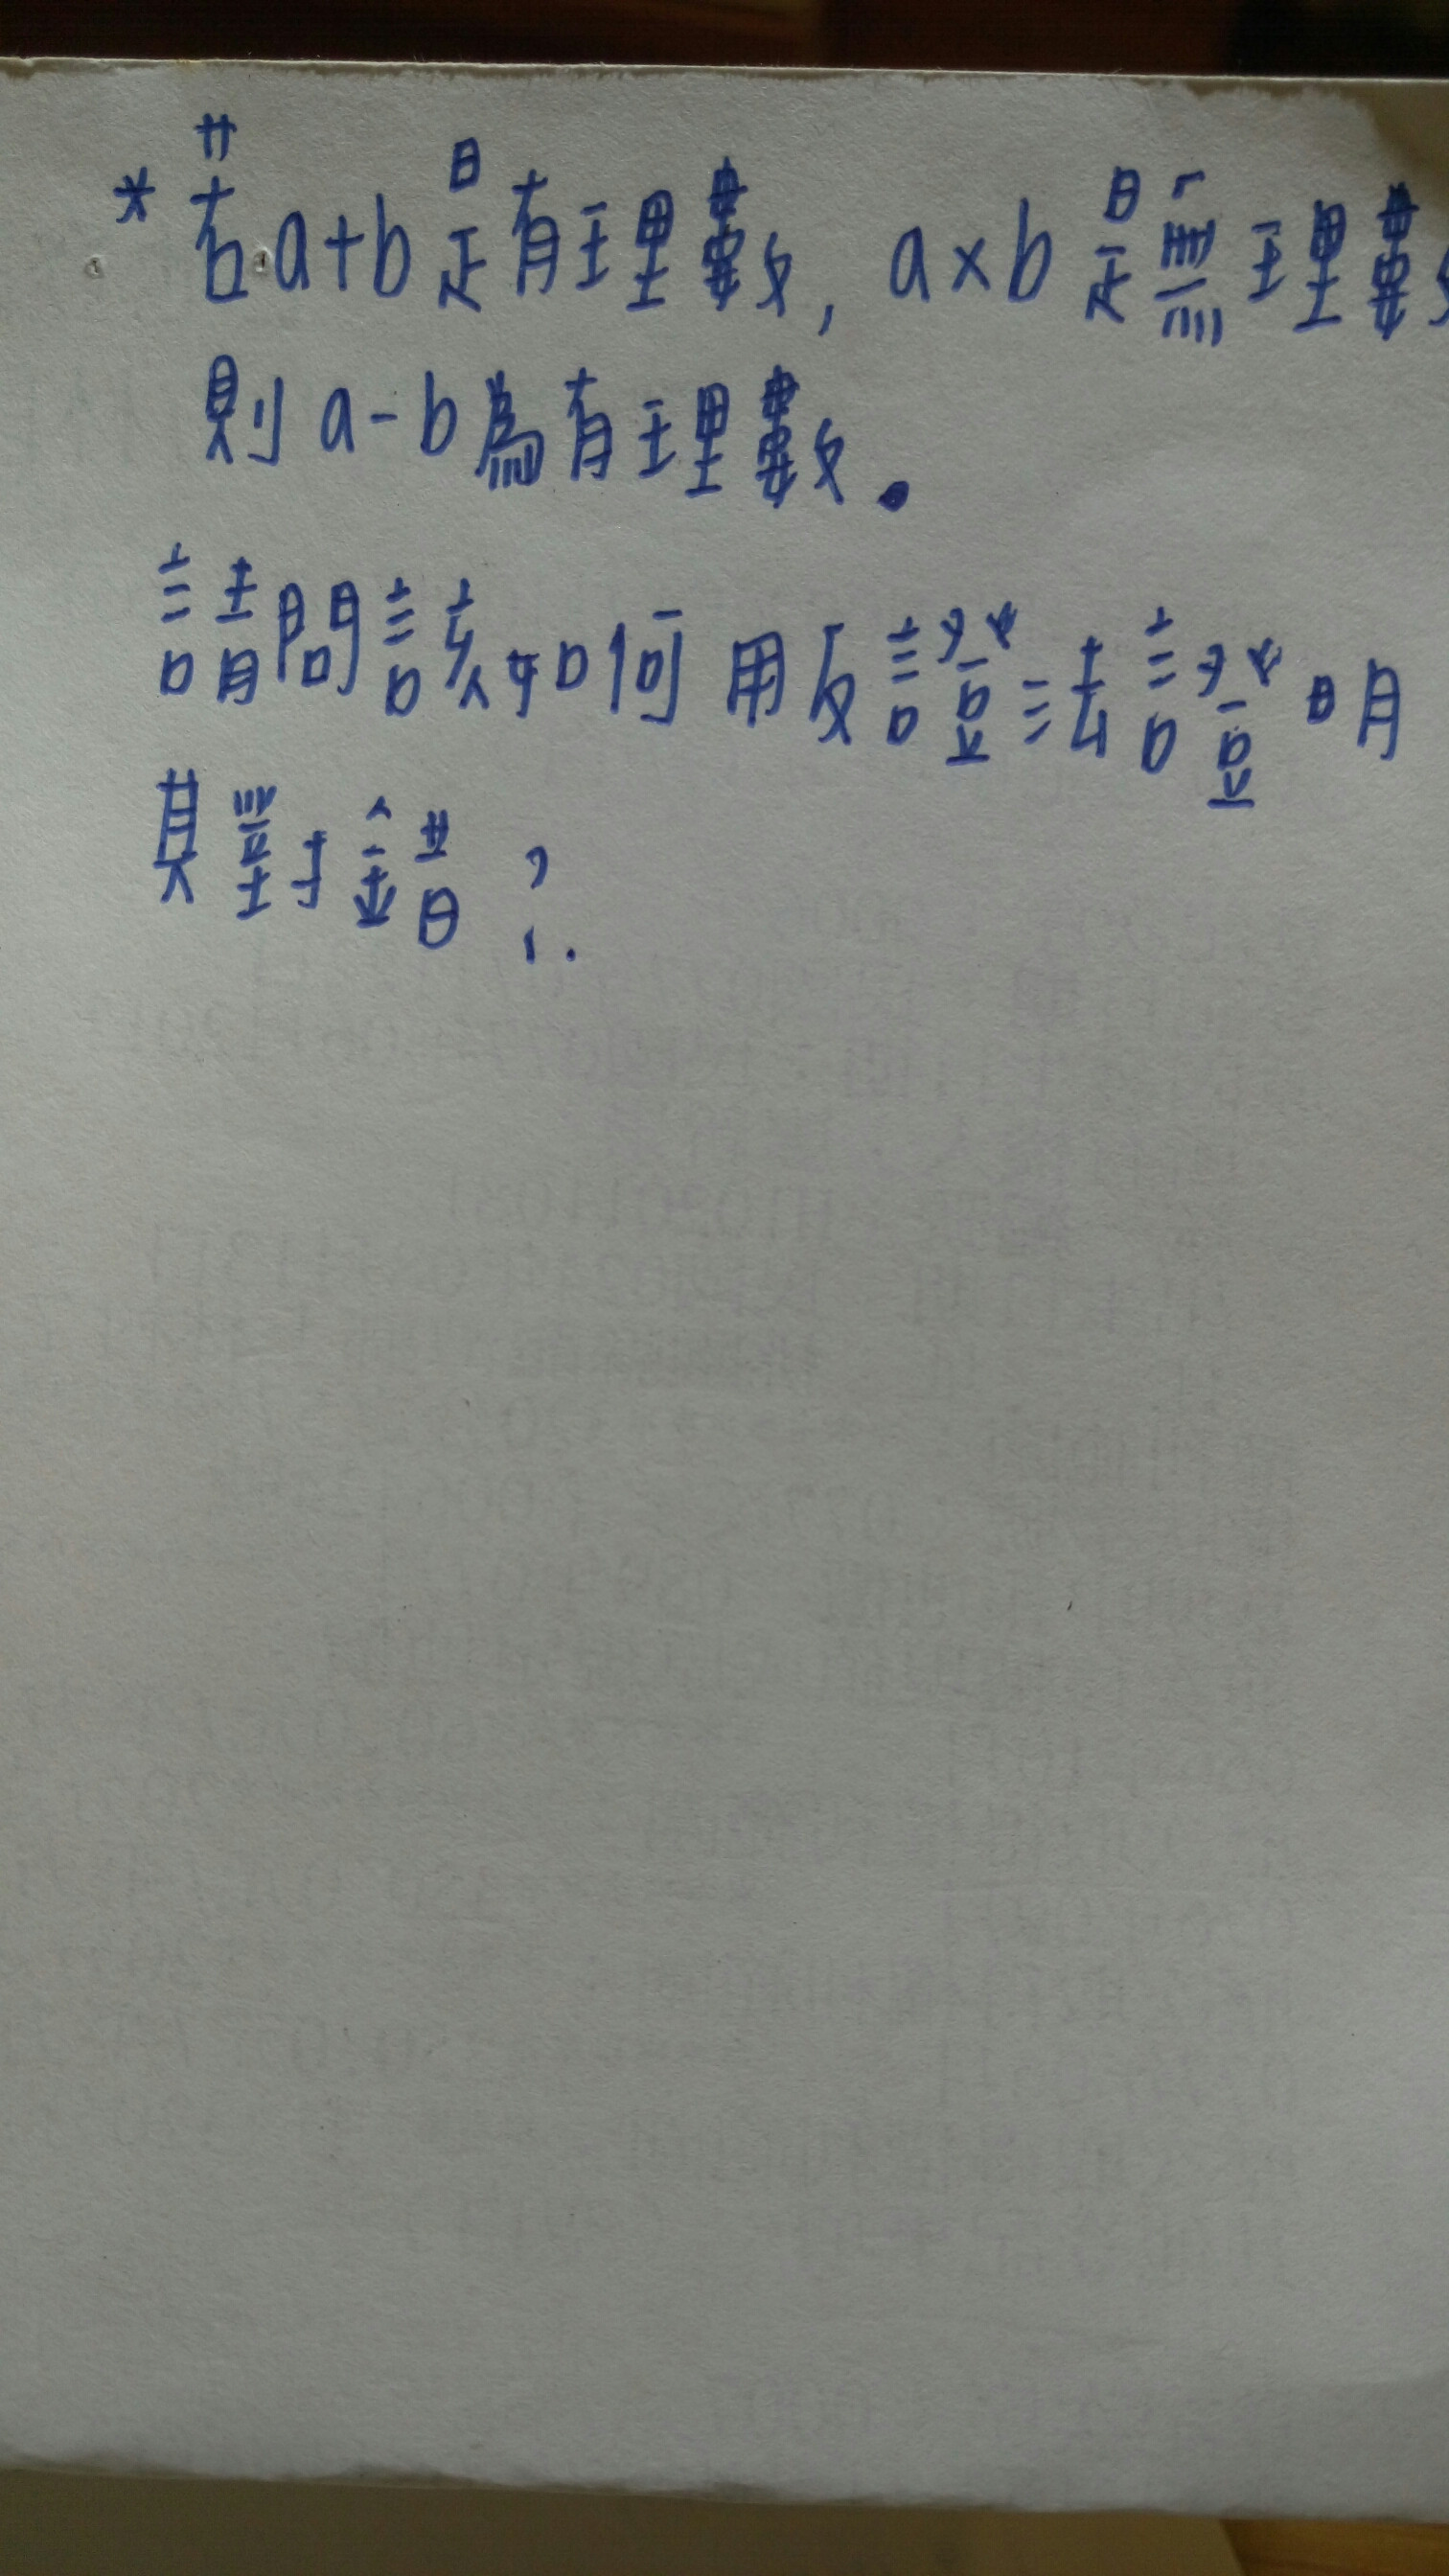 * 若a+b是有理數, a×b是無理數
則a-b為有理數。
請問該如何用反證法證明
其對錯?